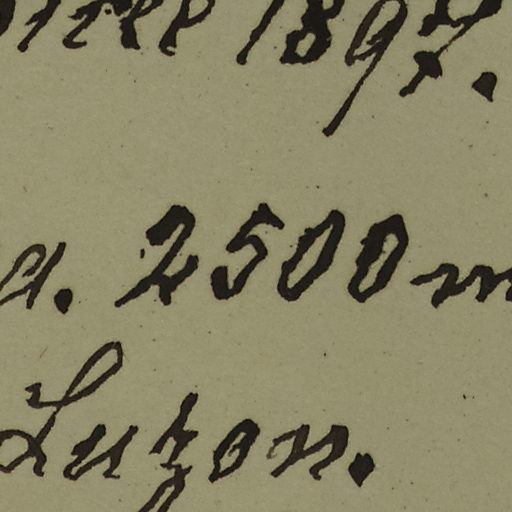 1897.
a. 2500 m
Luzon.